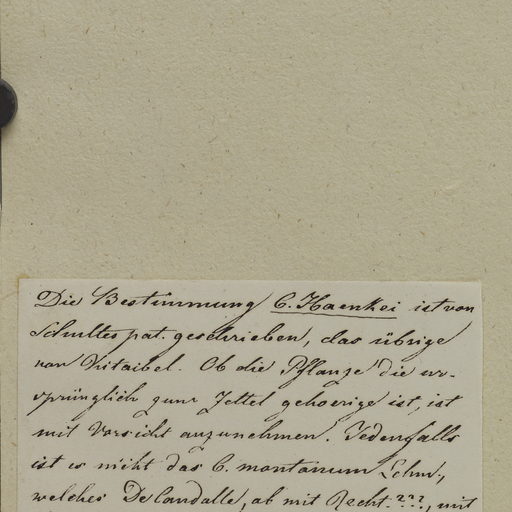 Die Bestimmung C. Haenkei ist von
Schultes pat. geschrieben, das übrige
von Kitaibel. Ob die Pflanze die ur-
sprünglich zum Zettel gehoerige ist, ist
mit Vorsicht anzunehmen. Jedenfalls
ist es nicht das C. montanum Lehm.,
welches De Candolle, ob mit Recht ???, mit